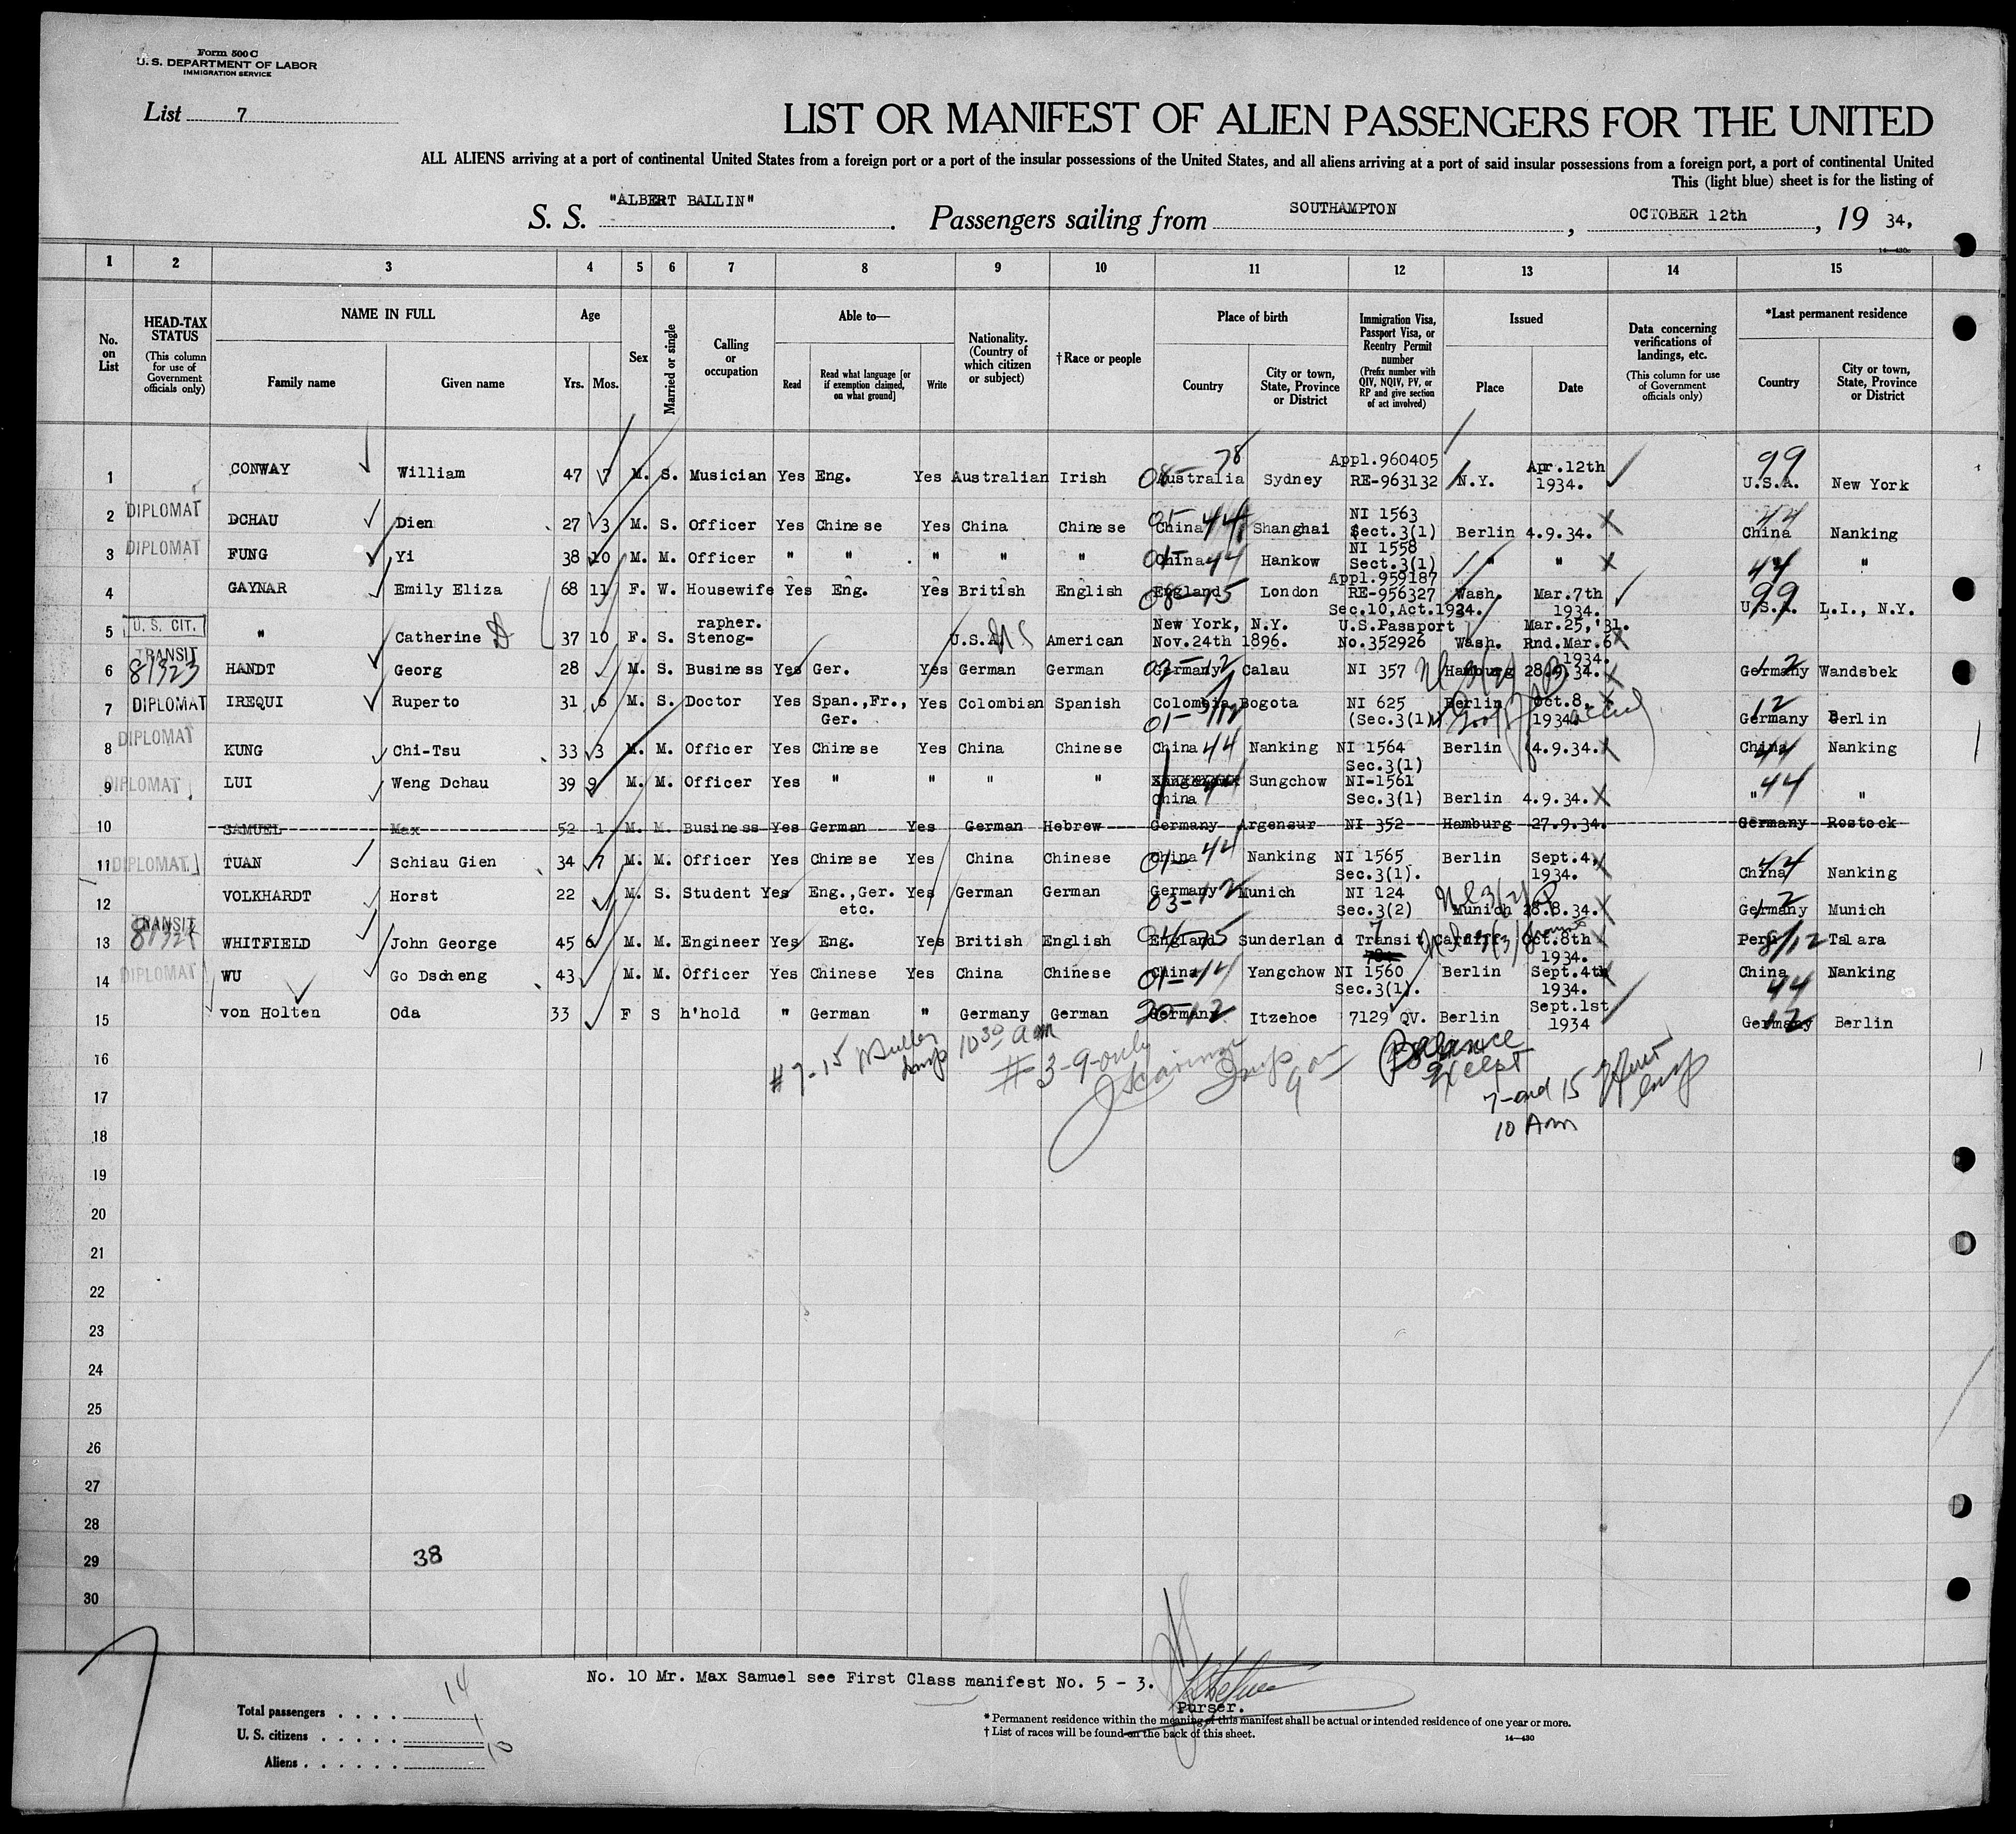 Form 500 C
U. S. DEPARTMENT OF LABOR
IMMIGRATION SERVICE
List 7
LIST OR MANIFEST OF ALIEN PASSENGERS FOR THE UNITED
ALL ALIENS arriving at a port of continental United States from a foreign port or a port of the insular possessions of the United States, and all aliens arriving at a port of said insular possessions from a foreign port, a port of continental United
This (light blue) sheet is for the listing of
S. S. "ALBERT BALLIN". Passengers sailing from SOUTHAMPTON, OCTOBER 12th, 19 34,
14—430
1 2 3 4 5 6 7 8 9 10 11 12 13 14 15
No. on List
HEAD-TAX STATUS
(This column for use of Government officials only)
NAME IN FULL
Family name Given name
Age
Yrs. Mos.
Sex
Married or single
Calling or occupation
Able to—
Read
Read what language [or if exemption claimed, on what ground]
Write
Nationality. (Country of which citizen or subject)
†Race or people
Place of birth
Country
City or town, State, Province or District
Immigration Visa, Passport Visa, or Reentry Permit number
(Prefix number with QIV, NQIV, PV, or RP and give section of act involved)
Issued
Place Date
Data concerning verifications of landings, etc.
(This column for use of Government officials only)
*Last permanent residence
Country
City or town, State, Province or District
1 CONWAY William 47 7 M. S. Musician Yes Eng. Yes Australian Irish 08-78 Australia Sydney Appl.960405 RE-963132 N.Y. Apr.12th 1934. 99 U.S.A. New York
2 DIPLOMAT DCHAU Dien 27 3 M. S. Officer Yes Chinese Yes China Chinese 01- China 44 Shanghai NI 1563 Sect.3(1) Berlin 4.9.34. 44 China Nanking
3 DIPLOMAT FUNG Yi 38 10 M. M. Officer " " " " " 01- China 44 Hankow NI 1558 Sect.3(1) " " 44 "
4 GAYNAR Emily Eliza 68 11 F. W. Housewife Yes Eng. Yes British English England 08-75 London Appl.959187 RE-956327 Sec.10,Act.1924. Wash. Mar.7th 1934. 99 U.S.A. L.I., N.Y.
5 U. S. CIT. " Catherine D 37 10 F. S. Stenographer. U.S.A. US American New York, N.Y. Nov.24th 1896. U.S.Passport No.352926 Wash. Mar.25,'31. Rnd.Mar.6 1934.
6 TRANSIT 81323 HANDT Georg 28 M. S. Business Yes Ger. Yes German German 03-12 Germany Calau NI 357 Hamburg 28.9.34. Germany 12 Wandsbek
7 DIPLOMAT IREQUI Ruperto 31 6 M. S. Doctor Yes Span.,Fr., Ger. Yes Colombian Spanish Colombia Bogota NI 625 (Sec.3(1) Berlin Oct.8, 1934. 12 Germany Berlin
8 DIPLOMAT KUNG Chi-Tsu 33 3 M. M. Officer Yes Chinese Yes China Chinese China 44 Nanking NI 1564 Sec.3(1) Berlin 4.9.34. China 44 Nanking
9 DIPLOMAT LUI Weng Dchau 39 9 M. M. Officer Yes " " " " China 44 Sungchow NI-1561 Sec.3(1) Berlin 4.9.34. " 44 "
10 SAMUEL Max 52 1 M. M. Business Yes German Yes German Hebrew Germany Argensur NI 352 Hamburg 27.9.34. Germany Rostock
11 DIPLOMAT TUAN Schiau Gien 34 7 M. M. Officer Yes Chinese Yes China Chinese 01- China 44 Nanking NI 1565 Sec.3(1). Berlin Sept.4, 1934. China 44 Nanking
12 VOLKHARDT Horst 22 M. S. Student Yes Eng.,Ger. etc. Yes German German Germany 03-12 Munich NI 124 Sec.3(2) Munich 28.8.34. Germany 12 Munich
13 TRANSIT WHITFIELD John George 45 6 M. M. Engineer Yes Eng. Yes British English England Sunderland Transit Cardiff Oct.8th 1934. Peru Talara
14 DIPLOMAT WU Go Dscheng 43 M. M. Officer Yes Chinese Yes China Chinese China 01-44 Yangchow NI 1560 Sec.3(1). Berlin Sept.4th 1934. China 44 Nanking
15 von Holten Oda 33 F S h'hold " German " Germany German Germany Itzehoe 7129 QV. Berlin Sept.1st 1934 Germany 12 Berlin
16 # 7-15 Insp 10 30 am
# 3-9-only
Insp 9 am
Balance Except 7-and 15 Insp
10 Am
17
18
19
20
21
22
23
24
25
26
27
28
29
38
30
No. 10 Mr. Max Samuel see First Class manifest No. 5 - 3.
Purser.
Total passengers . . . . 14
U. S. citizens . . . . . 1
Aliens . . . . . . 10
* Permanent residence within the meaning of this manifest shall be actual or intended residence of one year or more.
† List of races will be found on the back of this sheet.
14—430